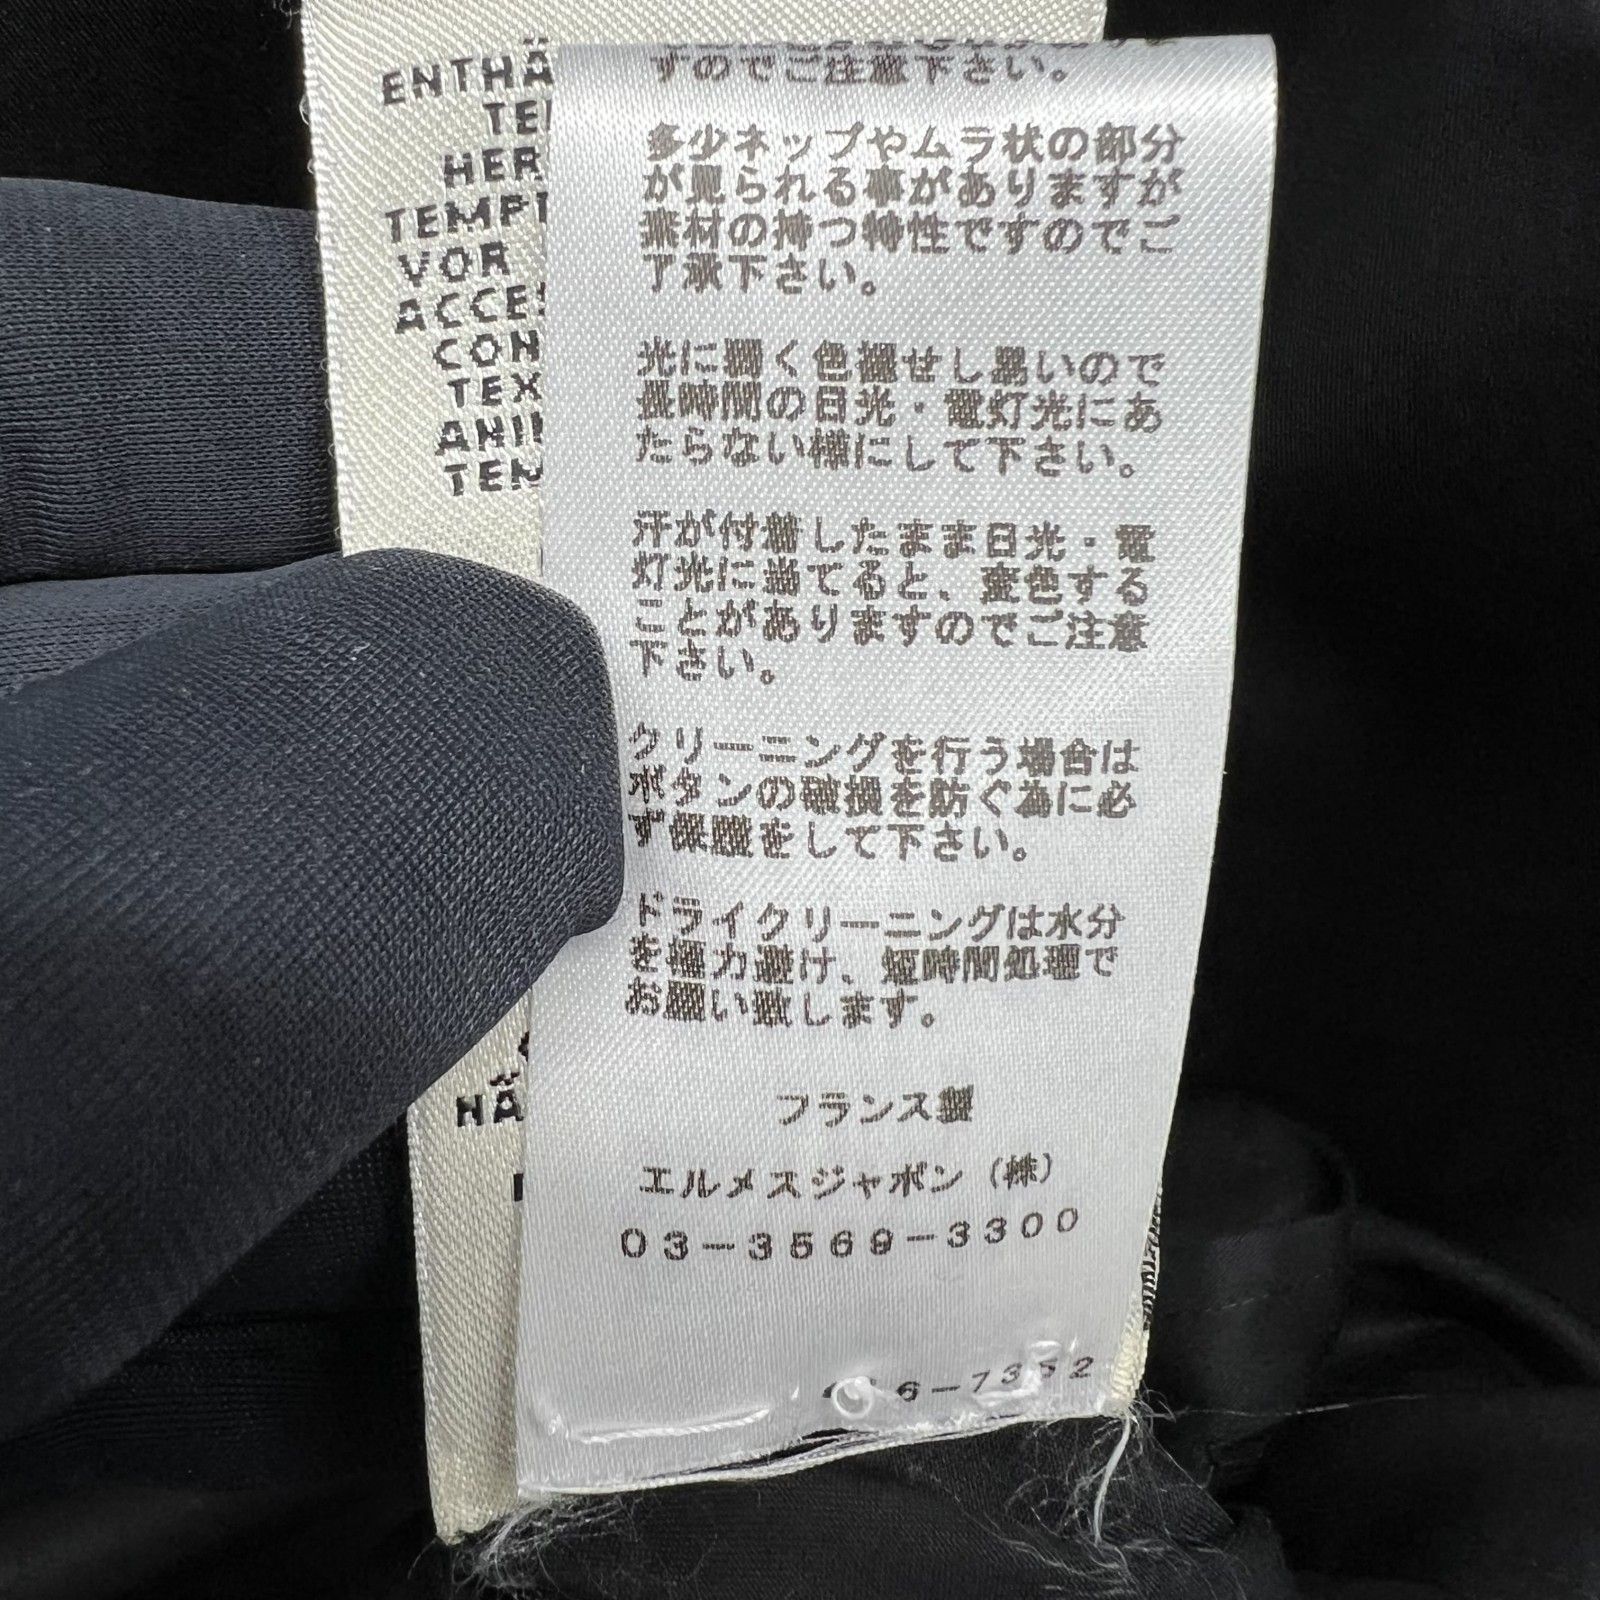 ENTHÄ
TE
HER
TEMP
VOR
ACCES
CON
TEX
ANIM
TEM
HÄ
すのでご注意下さい。
多少ネップやムラ状の部分
が見られる事がありますが
素材の持つ特性ですのでご
了承下さい。
光に弱く色褪せし易いので
長時間の日光・電灯光にあ
たらない様にして下さい。
汗が付着したまま日光・電
灯光に当てると、変色する
ことがありますのでご注意
下さい。
クリーニングを行う場合は
ボタンの破損を防ぐ為に必
ず保護をして下さい。
ドライクリーニングは水分
を極力避け、短時間処理で
お願い致します。
フランス製
エルメスジャポン(株)
03-3569-3300
6-7352